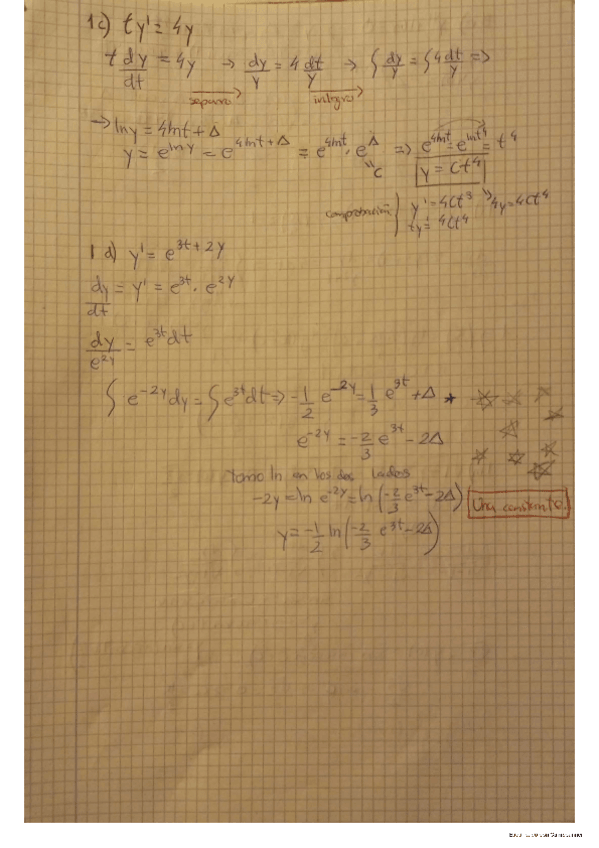 1c) ty' = 4y
t dy/dt = 4y → dy/y = 4 dt/y → ∫ dy/y = ∫ 4 dt/y =>
separo integro
→ ln y = 4lnt + Δ
y = e^{ln y} = e^{4lnt + Δ} = e^{4lnt} · e^{Δ} => e^{4lnt} = e^{lnt^4} = t^4
"c
y = ct^4
comprobación } y' = 4ct^3 → 4y = 4ct^4
ty' = 4ct^4
1 d) y' = e^{3t + 2y}
dy/dt = y' = e^{3t} · e^{2y}
dy/e^{2y} = e^{3t} dt
∫ e^{-2y} dy = ∫ e^{3t} dt => -1/2 e^{-2y} = 1/3 e^{3t} + Δ *
e^{-2y} = -2/3 e^{3t} - 2Δ
Tomo ln en los dos lados
-2y = ln e^{-2y} = ln(-2/3 e^{3t} - 2Δ) Una constante.
y = -1/2 ln(-2/3 e^{3t} - 2Δ)